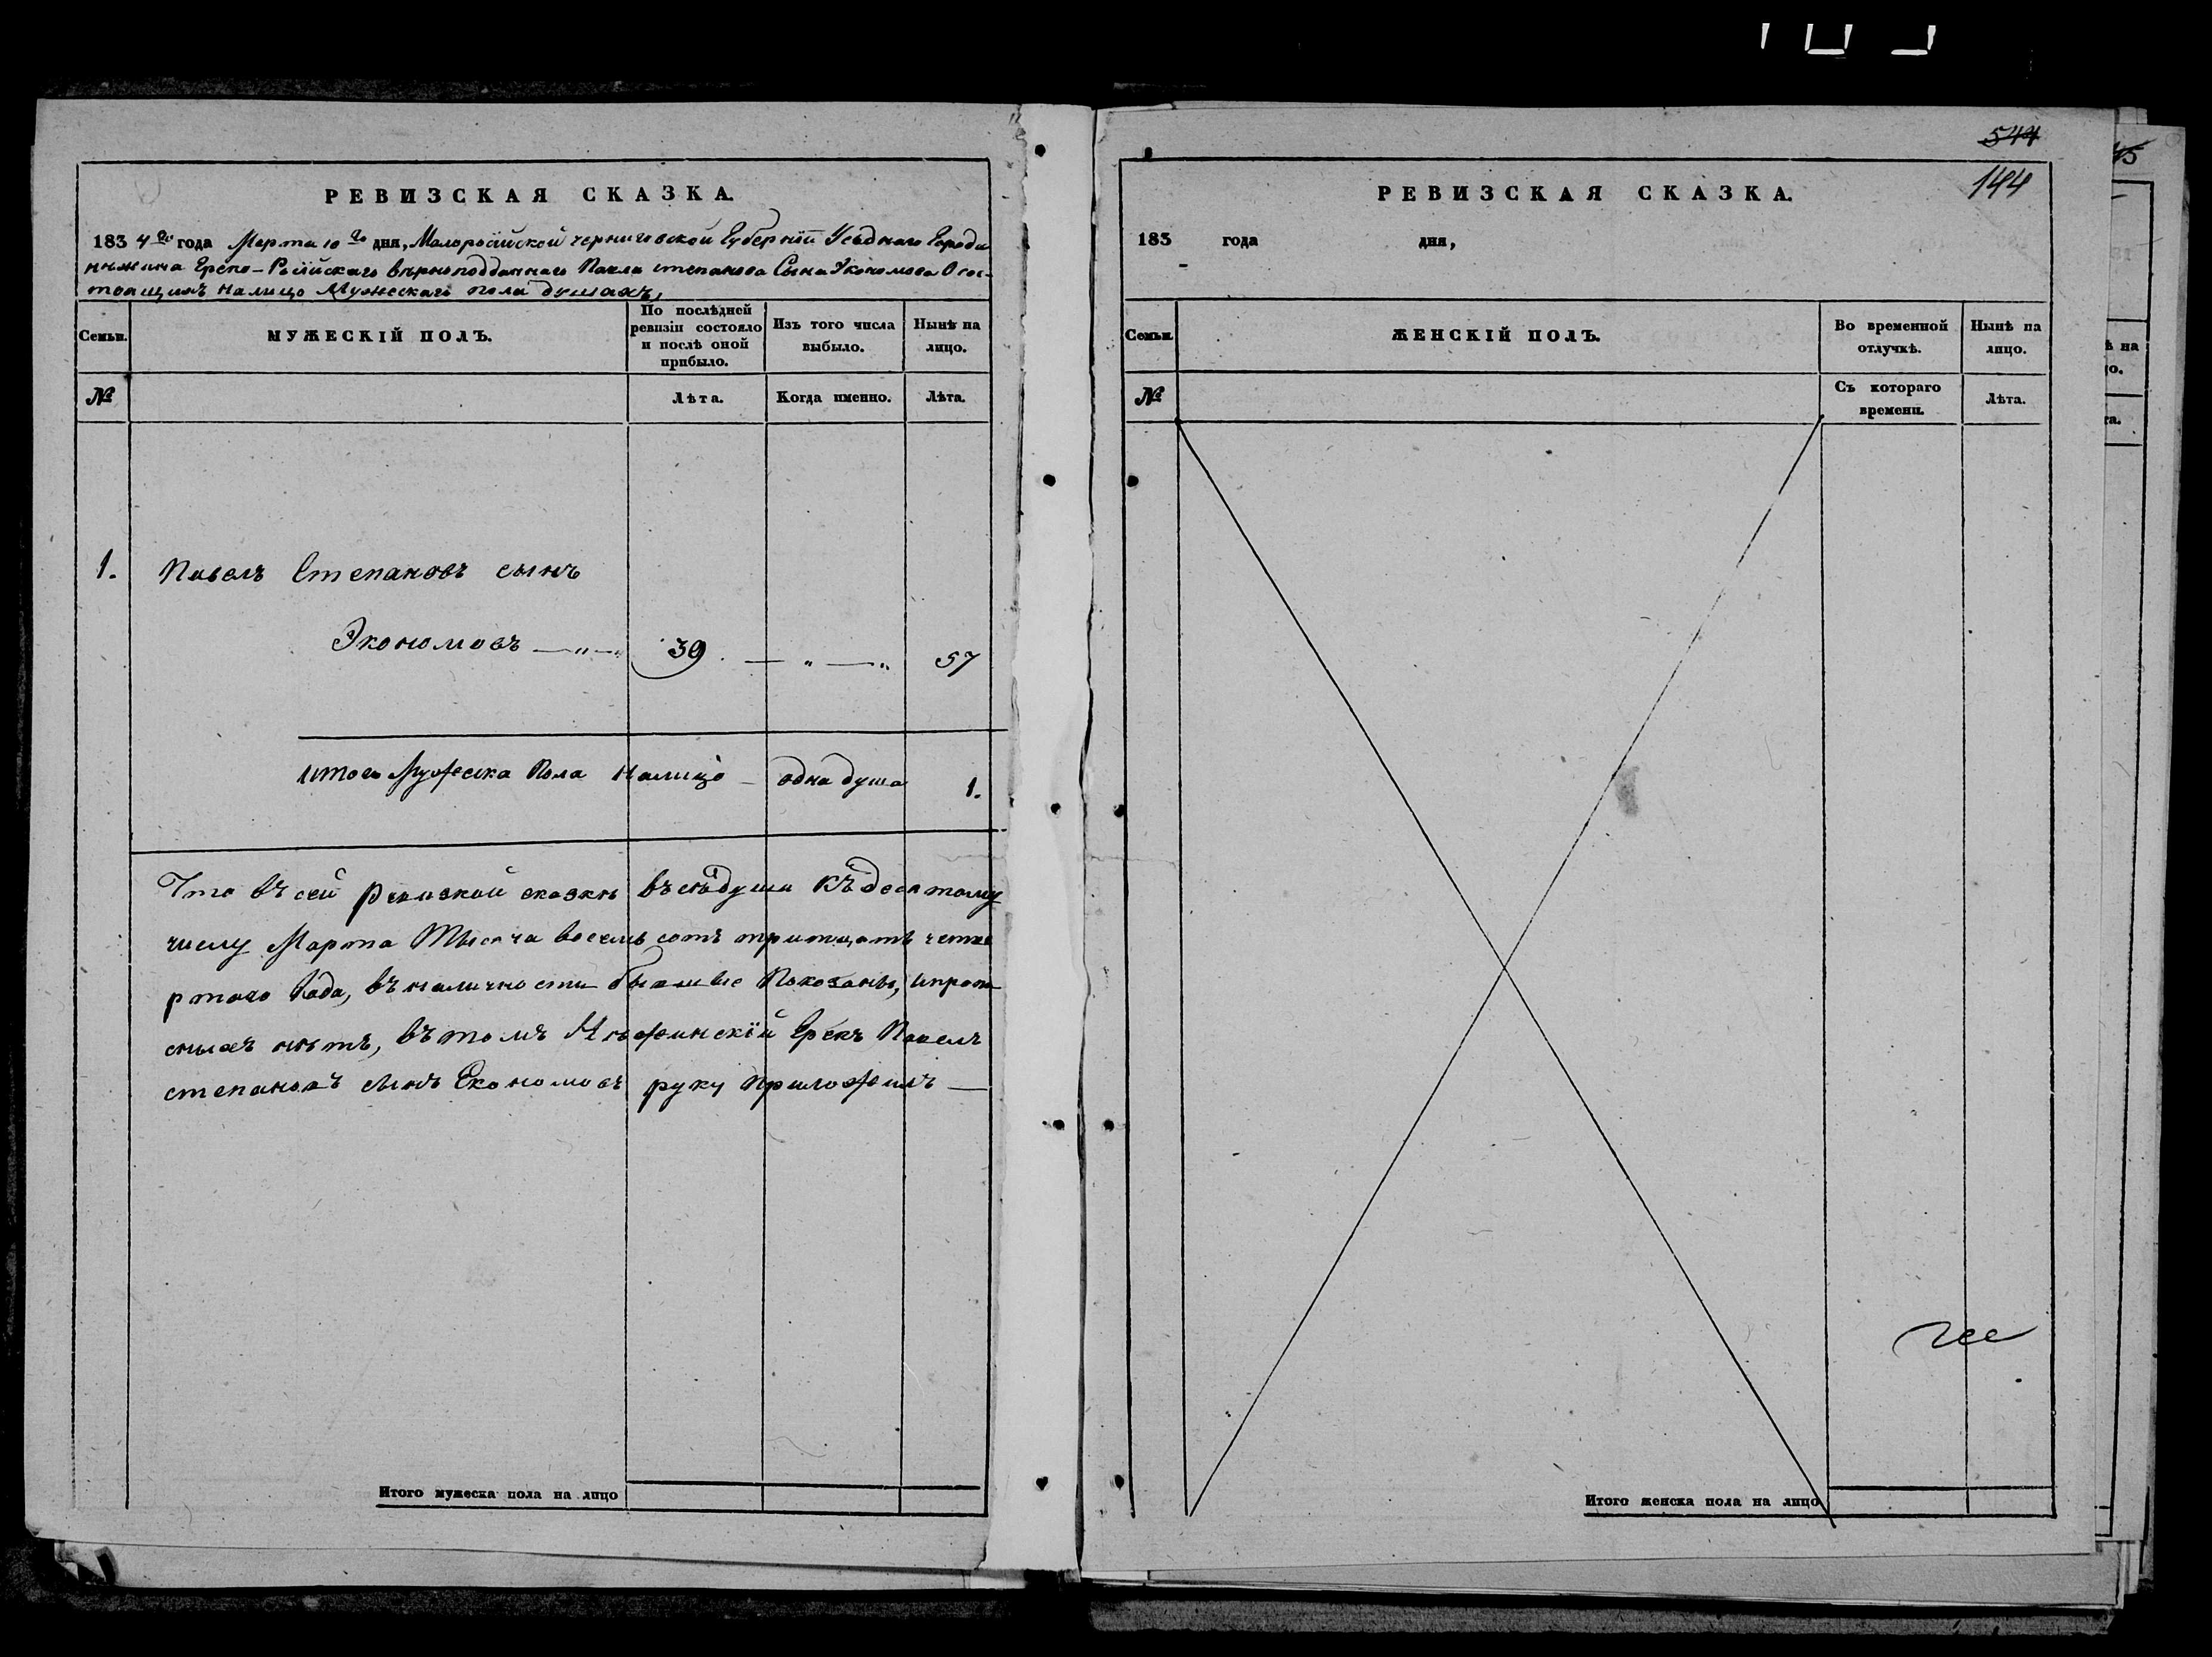 РЕВИЗСКАЯ СКАЗКА.
1834го года Марта 10го дня, Малоросійской черниговской Губерніи Уѣзднаго Города
нѣжина Греко-Російскаго вѣрноподданнаго Павла степанова Сына Экономова О сос-
тоящихъ налицо Мужескаго пола душахъ,
Семьи.
МУЖЕСКІЙ ПОЛЪ.
По послѣдней ревизіи состояло и послѣ оной прибыло.
Изъ того числа выбыло.
Нынѣ на лицо.
№
Лѣта.
Когда именно.
Лѣта.
1. Павелъ Степановъ сынъ
Экономовъ —„—„ 39. —„—„ 57
итого Мужеска Пола Налицо — одна душа 1.
Что въ сей ревизкой сказкѣ всѣ души къ десятому
числу Марта Тысяча восемь сотъ тритцать четве
ртаго Года, въ наличности бывшие Показаны, и
нѣтъ, въ томъ Нѣжинскій Грекъ Павелъ
степановъ сынъ Економовъ руку приложилъ —
Итого мужеска пола на лицо
544
144
РЕВИЗСКАЯ СКАЗКА.
183 года дня,
Семьи.
ЖЕНСКІЙ ПОЛЪ.
Во временной отлучкѣ.
Нынѣ на лицо.
№
Съ котораго времени.
Лѣта.
Итого женска пола на лицо